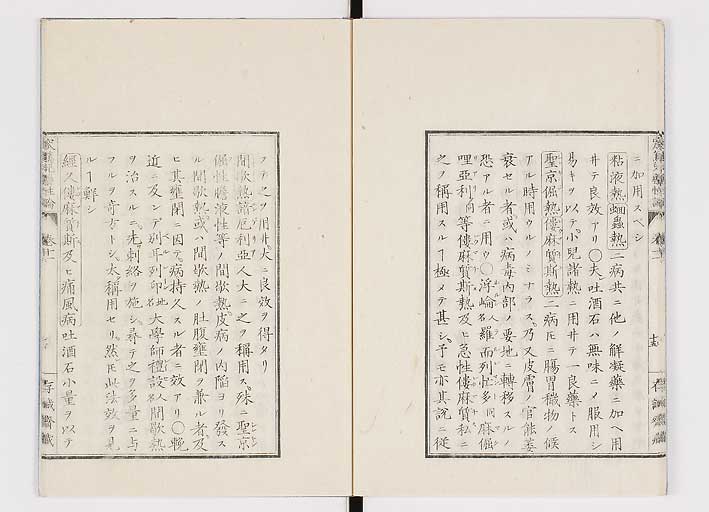 ニ加用スベシ
粘液熱蛔蟲熱 二病共ニ他ノ解凝藥ニ加ヘ用
井テ良效アリ〇夫吐酒石ハ無味ニメ服用シ
易キヲ以テ小兒諸熱ニ用井テ一良藥トス
聖京倔熱僂麻質斯熱 二病ﾓ腸胃穢物ノ候
アル時用ウルノミナラス乃又皮膚ノ官能萎
衰セル者或ハ病毒内部ノ要地ニ轉移スルノ
恐アル者ニ用ウ〇
等僂麻質斯熱及ヒ急性僂麻質
之ノ稱用スルヿ極メテ甚シ予モ亦其説ニ從
フテ之ヲ用井大ニ良效ヲ得タリ
間歇熱 諳厄利亜人大ニ之ヲ稱用ス殊ニ聖京
倔性膽液性等ノ間歇熱皮病ノ内陷ヨリ發ス
ル間歇熱或ハ間歇熱ノ肚腹壅閉ヲ兼ル者及
ヒ其壅閉ニ因テ病持久スル者ニ效アリ〇輓
近ニ及ンデ 大學師 間歇熱
ヲ治スルニ先刺絡ヲ施シ尋テ之ヲ多量ニ與
フルヲ奇方トシ太稱用セリ然ﾓ此法效ヲ見
ルヿ鮮シ
經久僂麻質斯及ヒ痛風病 吐酒石小量ヲ以テ